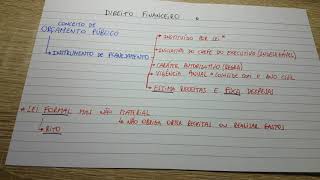 DIREITO FINANCEIRO
CONCEITO DE
ORÇAMENTO PÚBLICO
INSTITUÍDO POR LEI *
INSTRUMENTO DE PLANEJAMENTO
INICIATIVA DO CHEFE DO EXECUTIVO (INDELEGÁVEL)
CARÁTER AUTORIZATIVO (REGRA)
VIGÊNCIA ANUAL COINCIDE COM O ANO CIVIL
ESTIMA RECEITAS E FIXA DESPESAS
* LEI FORMAL MAS NÃO MATERIAL
NÃO OBRIGA OBTER RECEITAS OU REALIZAR GASTOS
RITO